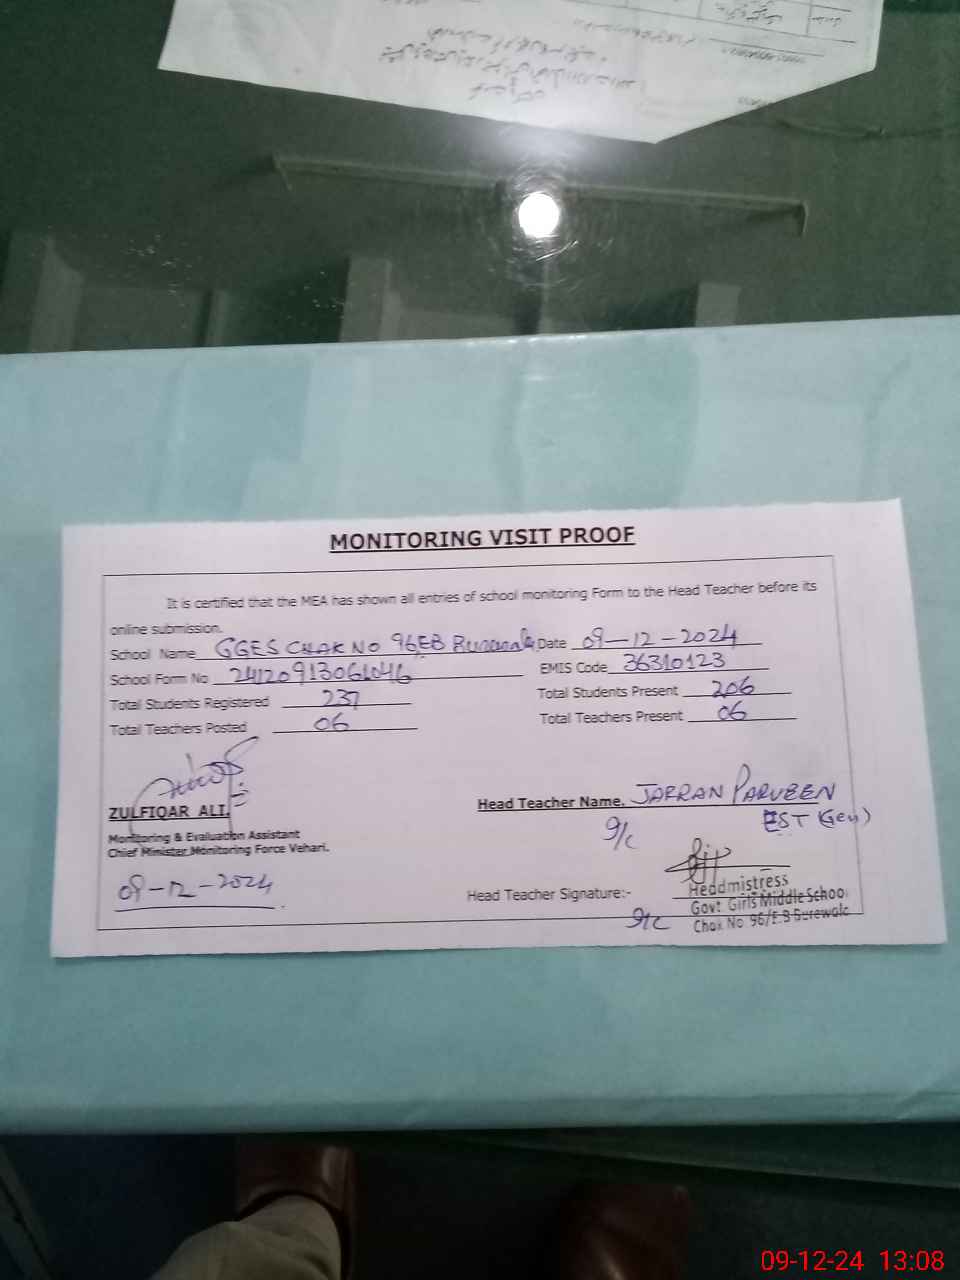 MONITORING VISIT PROOF
It is certified that the MEA has shown all entries of school monitoring Form to the Head Teacher before its
online submission.
School Name GGES CHAK NO 96EB Date 09-12-2024
School Form No 24120913061046 EMIS Code 36310123
Total Students Registered 237 Total Students Present 206
Total Teachers Posted 06 Total Teachers Present 06
ZULFIQAR ALI
Monitoring & Evaluation Assistant
Chief Minister Monitoring Force Vehari.
09-12-2024
Head Teacher Name. PARVEEN
I/C EST (Gen)
Head Teacher Signature:-
I/C
Headmistress
Govt. Girls Middle School
Chak No. 96/E.B Burewala
09-12-24 13:08